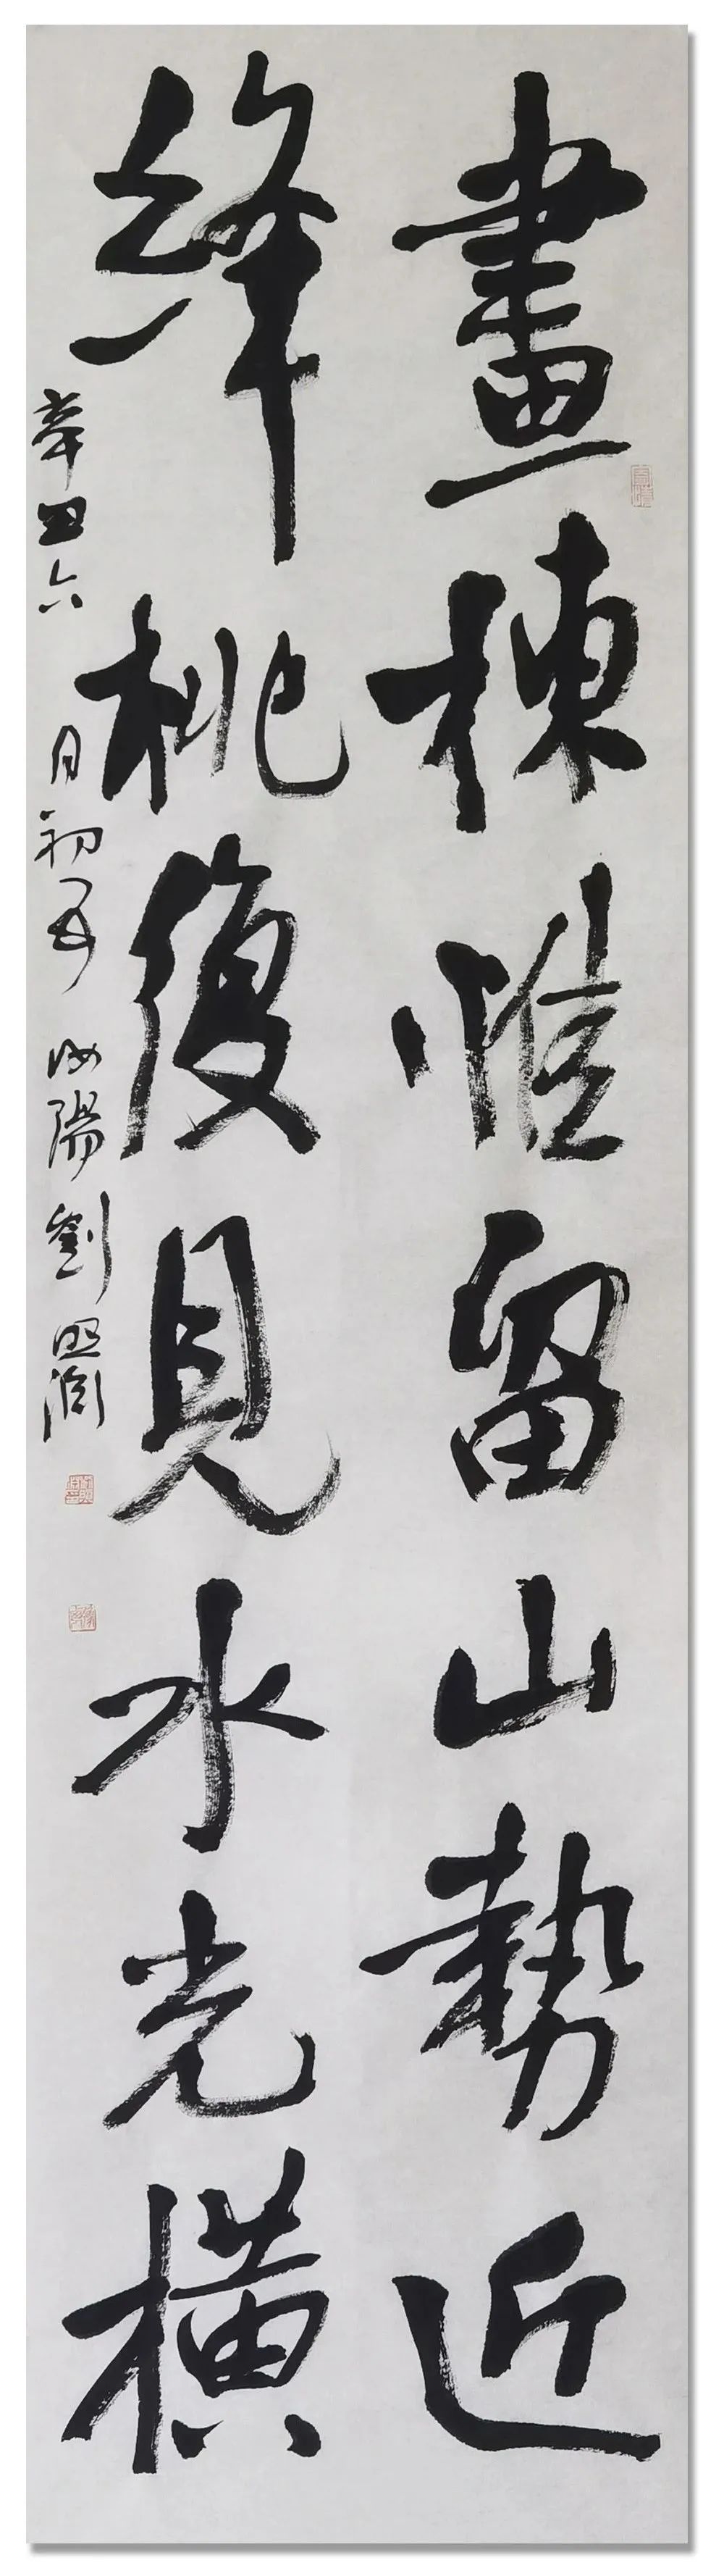 畫棟惟留山勢近
絳桃復見水光橫
辛丑六月初五 汝陽劉照淵